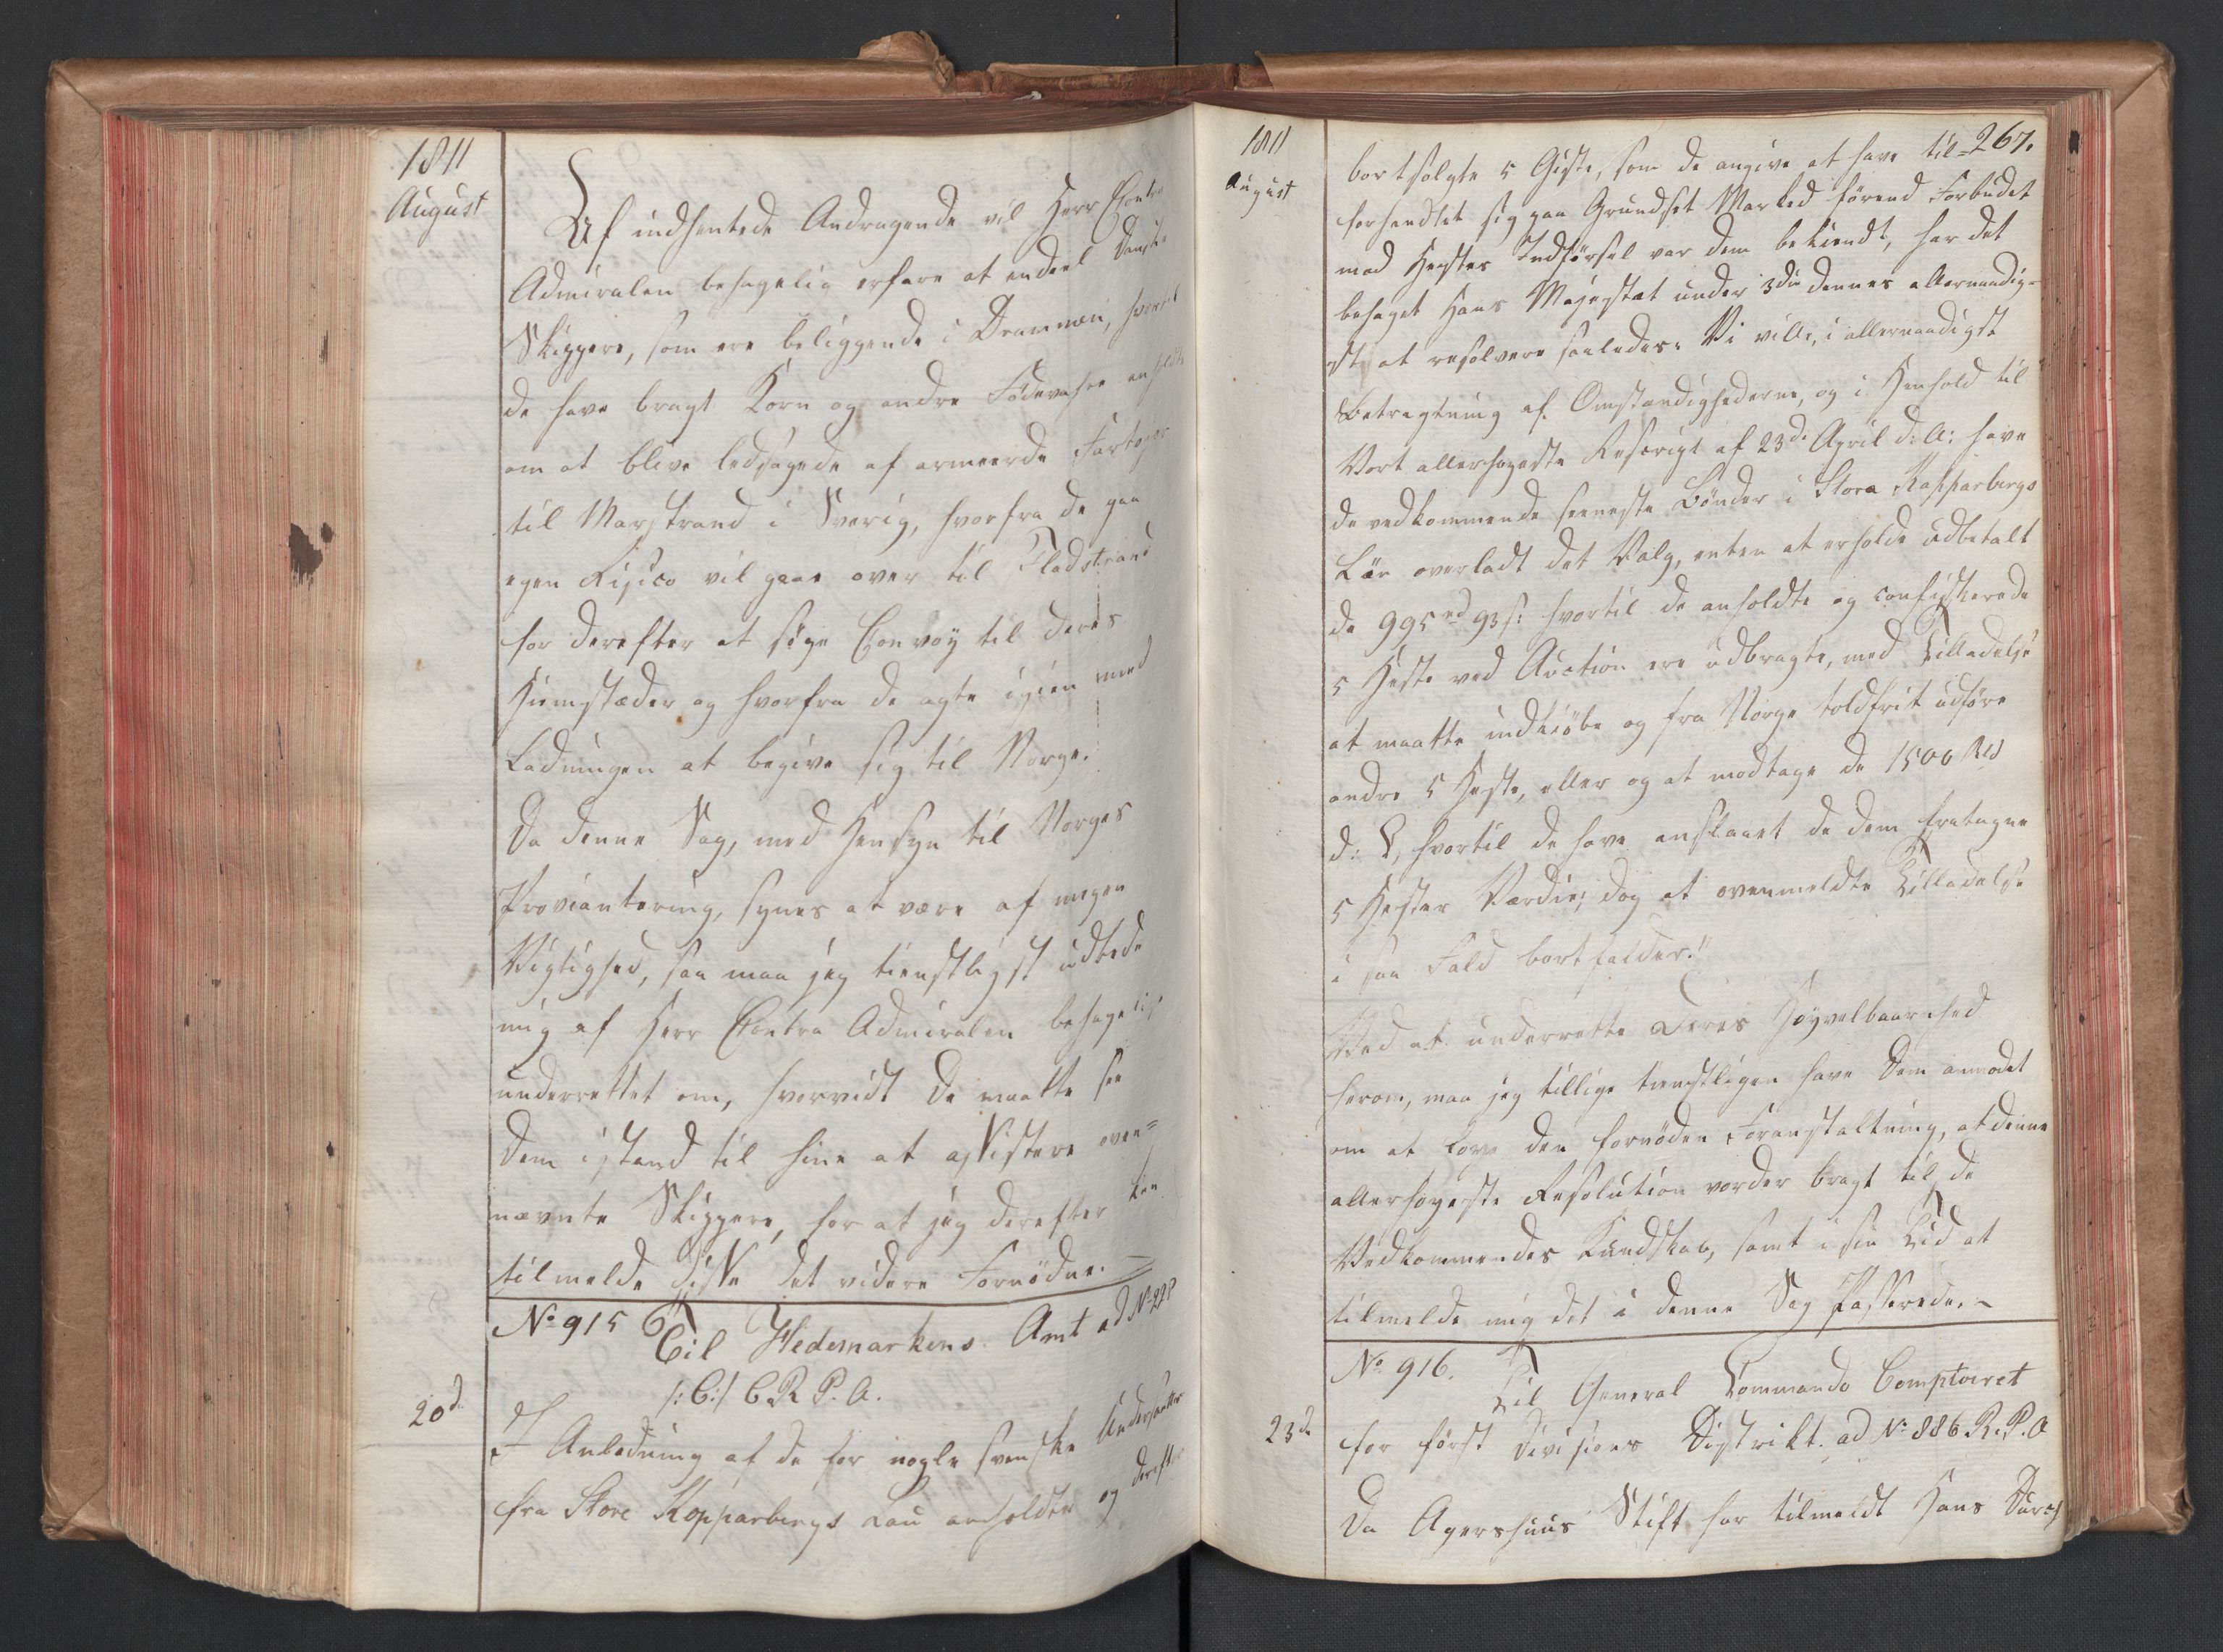 1811
August
Af indhentede Andragende vil Herr Contra
Admiralen behagelig erfare at endeel Danske
Skippere, som ere beliggende i Drammen, hvortil
de have bragt Korn og andre Fødevahre anholde
om at blive ledsagede af armeerde Fartøjer
til Marstrand i Sverig, hvorfra de paa
egen Risico vil gaae over til Fladstrand
for derefter at søge Convoÿ til deres
Hiemstæder og hvorfra de agte igien med
Ladningen at begive sig til Norge.
Da denne Sag, med Hensyn til Norges
Proviantering, synes at være af megen
Vigtighed, saa maa jeg tienstligst udbede
mig af Herr Contra Admiralen behagelig
underrettet om, hvorvidt De maatte see
Dem istand til hine at assistere oven=
nævnte Skippere, for at jeg derefter kan
tilmelde disse det videre Fornödne.
No 915
Til Hedemarkens Amt ad No 225
20d
/:C:/ C R P. A.
I Anledning af de for nogle svenske Undersaatter
fra Store Kopparbergs Län anholdte og derefter
1811
August
267.
bortsolgte 5 Heste, som de angive at have til=
forhandlet sig paa Grundset Marked förend Forbudet
mod Hestes Indförsel var dem bekiendt, har det
behaget Hans Majestæt under 3die dennes allernaadig=
st at resolvere saaledes: Vi ville, i allernaadigst
Betragtning af Omstændighederne, og i Henhold til
Vort allerhøyeste Rescript af 23d April d: A: have
de vedkommende svenske Bönder i Stora Kopparbergs
Län overladt det Valg, enten at erholde udbetalt
de 995rd 93s: hvortil de anholdte og confiskerede
5 Heste ved Auction ere udbragte, med Tilladelse
at maatte indkiöbe og fra Norge toldfrit udföre
andre 5 Heste, eller og at modtage de 1500 Rd
d: C, hvortil de have anslaaet de dem fratagne
5 Hestes Værdie; dog at ovenmeldte Tilladelse
i saa Fald bortfalder."
Ved at underrette Deres Høyvelbaarenhed
herom, maa jeg tillige tienstligen have Dem anmodet
om at föye den fornödne Foranstaltning, at denne
allerhøyeste Resolution vorder bragt til de
Vedkommendes Kundskab, samt i sin Tid at
tilmelde mig det i denne Sag Passerede.
No 916.
Til General Commando Comptoiret
23d
for först Divisions Distrikt. ad No 886 R. P. A
Da Agershuus Stift har tilmeldt Hans Durch